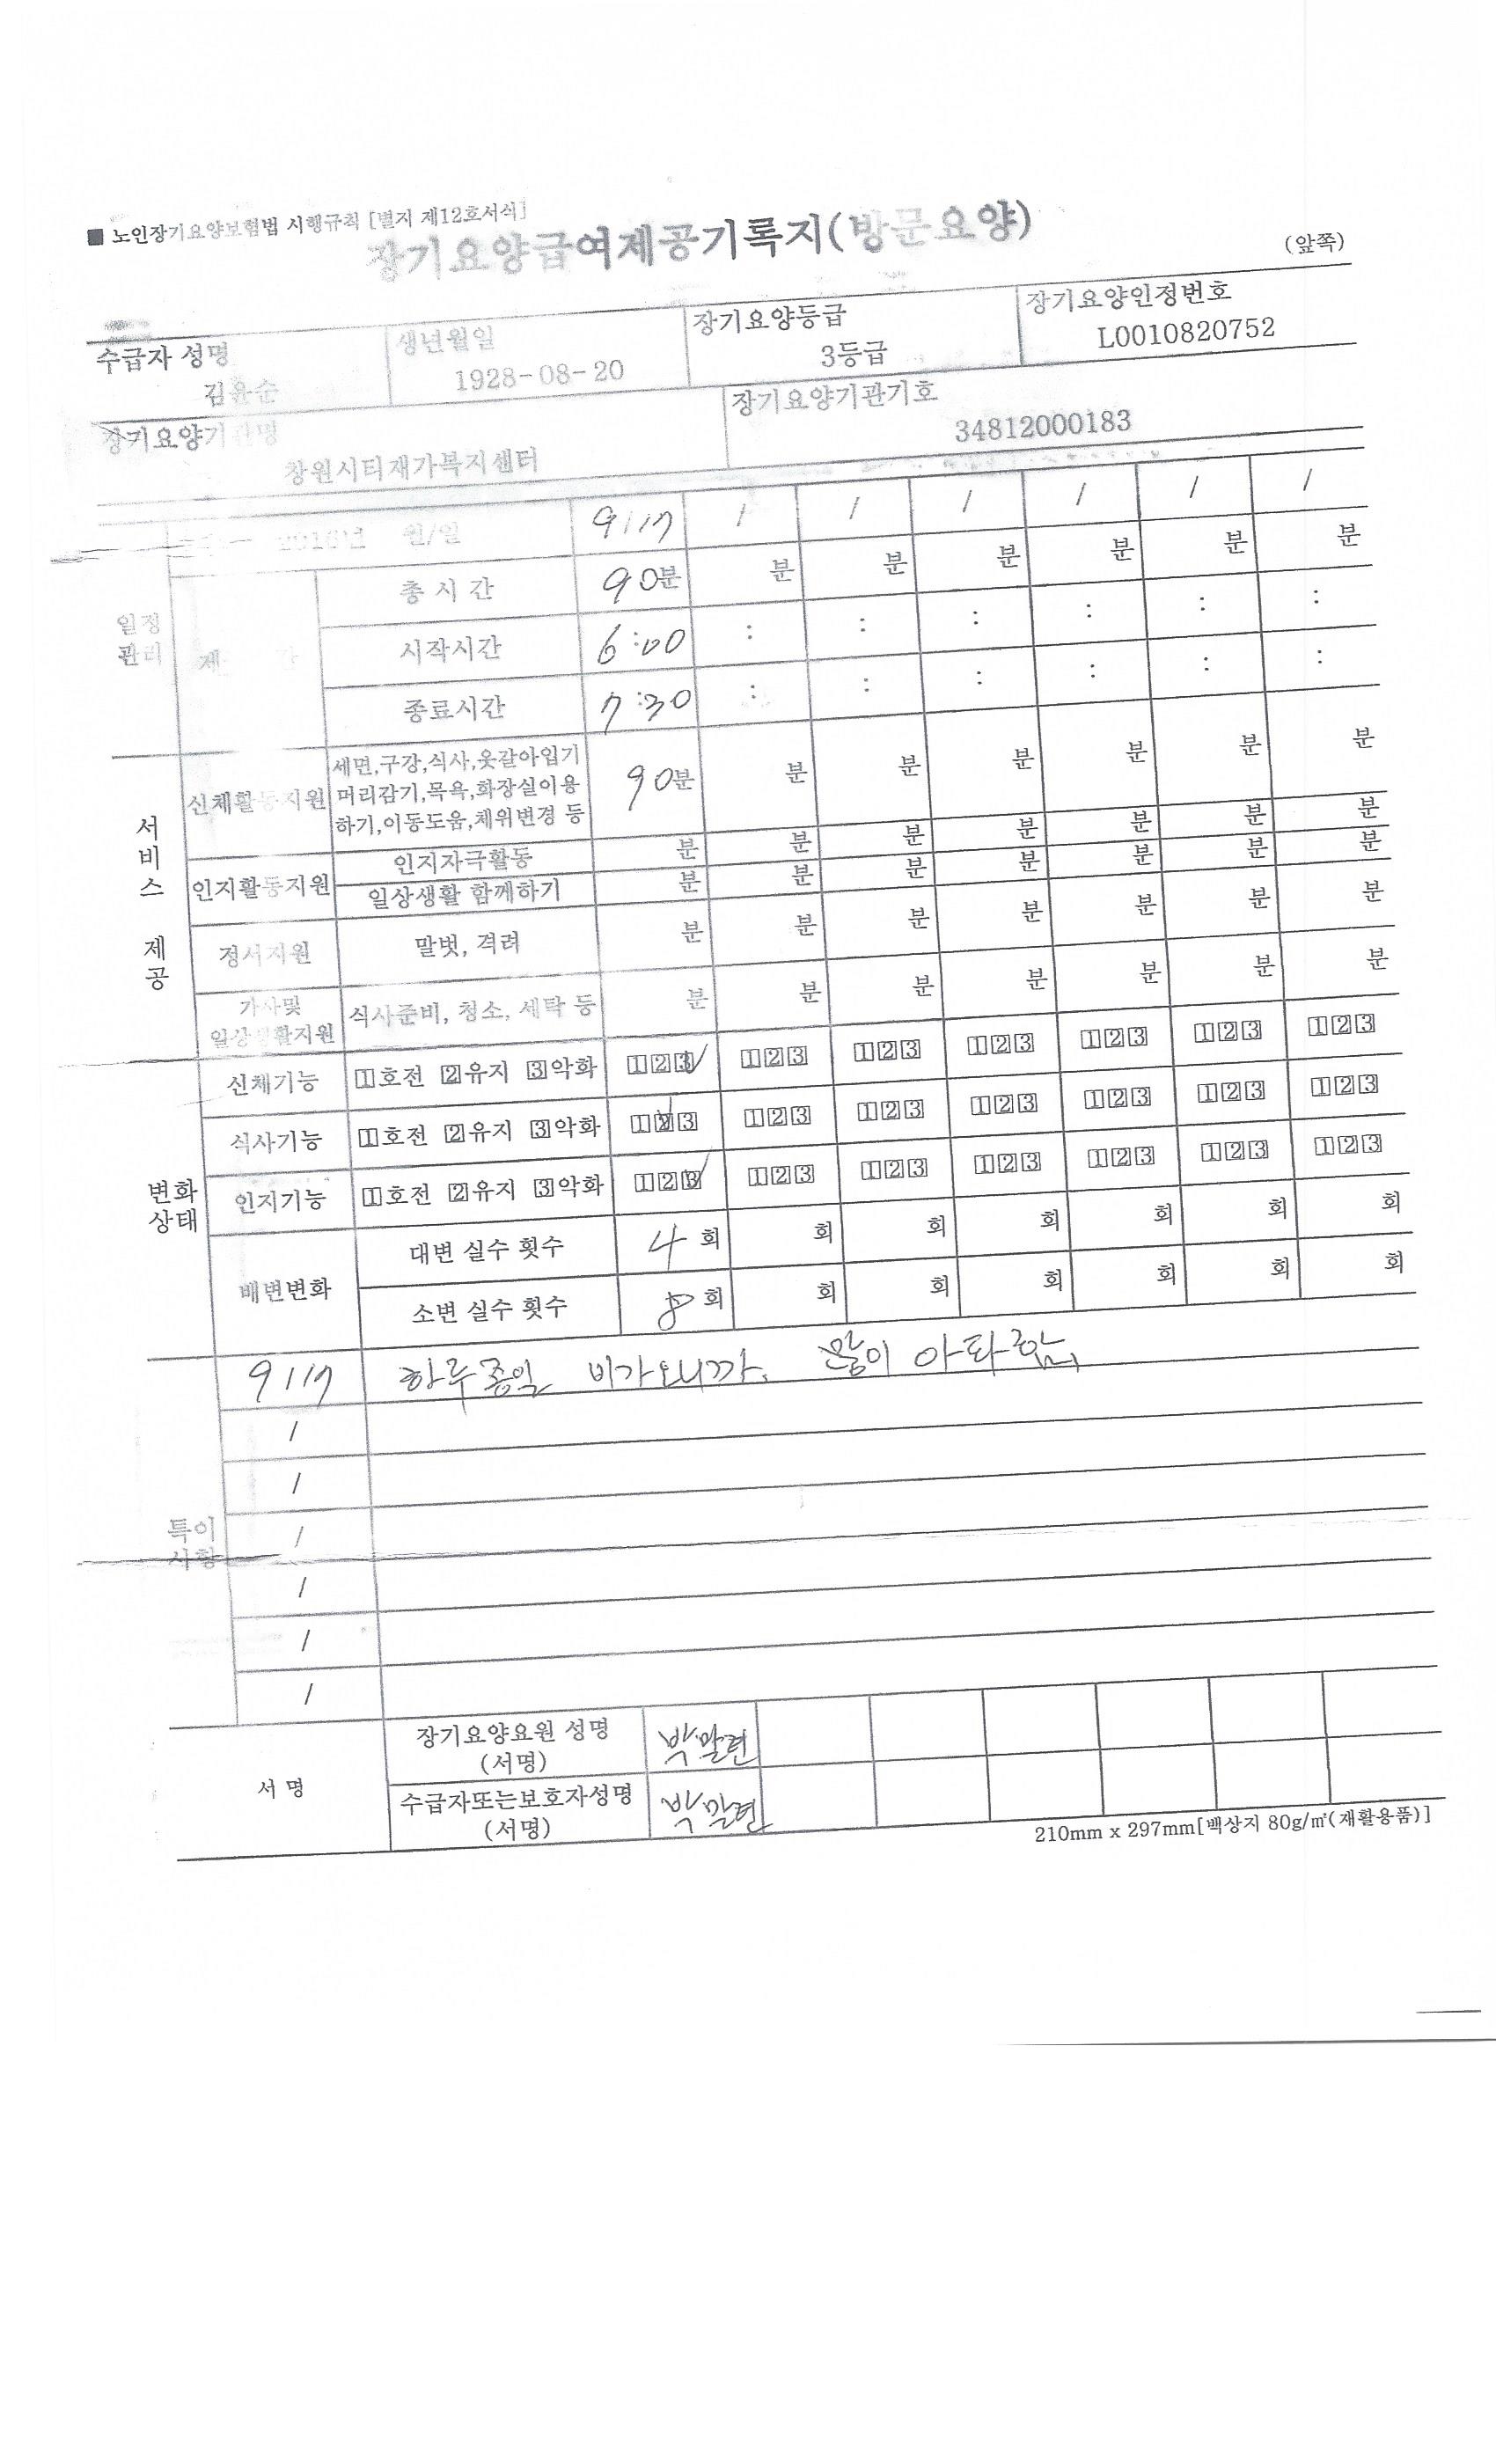 ■ 노인장기요양보험법 시행규칙 [별지 제12호서식]
장기요양급여제공기록지(방문요양)
(앞쪽)
수급자 성명 생년월일 장기요양등급 장기요양인정번호
김윤순 1928-08-20 3등급 L0010820752
장기요양기관명 장기요양기관기호
창원시티재가복지센터 34812000183
2016년 월/일 9/17 / / / / / /
일정
관리
총 시 간 90분 분 분 분 분 분 분
시작시간 6:00 : : : : : :
종료시간 7:30 : : : : : :
서
비
스
제
공
신체활동지원 세면,구강,식사,옷갈아입기
머리감기,목욕,화장실이용
하기,이동도움,체위변경 등
90분 분 분 분 분 분 분
인지활동지원 인지자극활동 분 분 분 분 분 분 분
일상생활 함께하기 분 분 분 분 분 분 분
정서지원 말벗, 격려 분 분 분 분 분 분 분
가사및
일상생활지원 식사준비, 청소, 세탁 등 분 분 분 분 분 분 분
변화
상태
신체기능 1호전 2유지 3악화 123 123 123 123 123 123 123
식사기능 1호전 2유지 3악화 123 123 123 123 123 123 123
인지기능 1호전 2유지 3악화 123 123 123 123 123 123 123
배변변화 대변 실수 횟수 4회 회 회 회 회 회 회
소변 실수 횟수 8회 회 회 회 회 회 회
특이
사항
9/17 하루종일 비가오니까. 많이 아파함
/
/
/
/
/
/
서 명
장기요양요원 성명
(서명) 박말련
수급자또는보호자성명
(서명) 박말련
210mm x 297mm[백상지 80g/㎡(재활용품)]